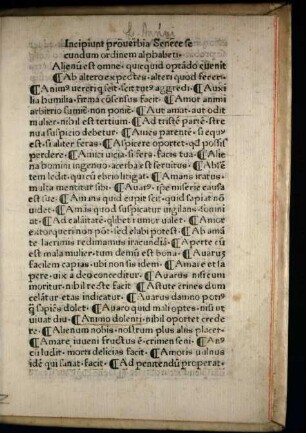 Incipiunt prouerbia Senece se
cundum ordinem alphabeti.
Alienū est omne quicquid optādo euenit
¶ Ab altero expectes alteri quod feceri.
¶ Animꝰ uereri qui scit, scit tutꝰ aggredi. ¶ Auxi
lia humilia, firma cōsensus facit. ¶ Amor animi
arbitrio sumit̄ non ponit̄. ¶ Aut amat, aut odit
mulier, nihil est tertium. ¶ Ad tristē partē stre
nua suspicio debetur. ¶ Ames parentē, si equꝰ
est, si aliter feras. ¶ Aspicere oportet, qd possis
perdere. ¶ Amici uicia, si feras facis tua. ¶ Alie
na homini ingenuo acerba est seruitus. ¶ Absē
tem ledit, qui cū ebrio litigat. ¶ Amans iratus
multa mentitur sibi. ¶ Auarꝰ ipse miserie causa
est sue. ¶ Amans quid cupiat scit, quid sapiat nō
uidet. ¶ Amās quod suspicatur uigilans somni
at. ¶ Ad calamitatē quilibet rumor ualet. ¶ Amor
extorqueri non pōt, sed elabi potest. ¶ Ab amā
te lacrimis redimamus iracundiā. ¶ Aperte cū
est mala mulier, tum deniū est bona. ¶ Auarus
facilem capias, ubi non sis idem. ¶ Amare et sa
pere uix a deo conceditur. ¶ Auarus nisi cum
moritur, nihil recte facit. ¶ Astute crines dum
celātur etas indicatur. ¶ Auarus damno potiꝰ
q̄ sapiēs dolet. ¶ Auaro quid mali optes, nisi ut
uiuat diu. ¶ Animo dolenti nihil oportet crede
re. ¶ Alienum nobis, nostrum plus aliis placet.
¶ Amare iuueni fructus ē, crimen seni. ¶ Anꝰ
cū ludit, morti delicias facit. ¶ Amoris uulnus
idē qui sanat, facit. ¶ Ad penitendū properat,